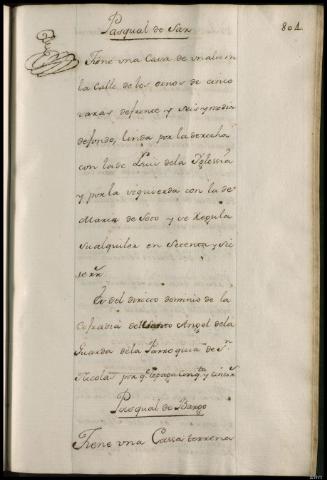 Pasqual de San
801
Tiene una Casa de un alto en
la Calle de los de cinco
varas de frente y seis y media
de fondo, linda por la derecha
con la de Luis de la Yglesia
y por la yzquierda con la de
Maria de Soto y se Regula
su alquiler en Setenta y Sie
te rr.
Es del directo dominio de la
Cofradia del Santo Angel de la
Guarda de la Parroquia de S.
Nicolas por q.e le paga cinq.ta y
Pasqual de
Tiene una Cassa terrena